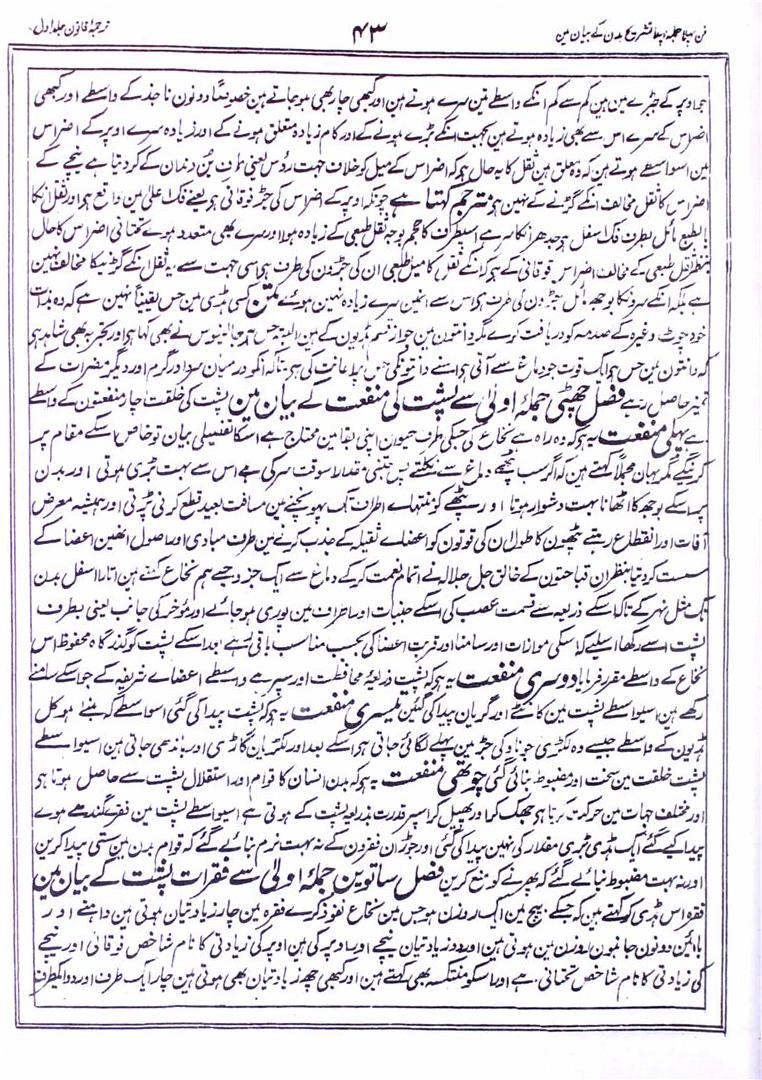 ترجمۂ قانون جلد اول
۴۳
فن پہلا جملہ پہلا تشریح بدن کے بیان مین
جو اوپر کے جبڑے مین ہین کم سے کم انکے واسطے تین سرے ہوتے ہین اور کبھی چار بھی ہو جاتے ہین خصوصًا دونون ناجذ کے واسطے اور کبھی
اضراس کے سرے اس سے بھی زیادہ ہوتے ہین بجہت انکے بڑے ہونے کے اور کام زیادہ متعلق ہونے کے اور زیادہ سرے اوپر کے اضراس
مین اسواسطے ہوتے ہین کہ وہ معلق ہین ثقل کا یہ حال ہے کہ اضراس کے میل کو خلاف جہت رؤس یعنی طرف بن دندان کے کر دیتا ہے نیچے کے
اضراس کا ثقل مخالف انکے گڑنے کے نہین ہے مترجم کہتا ہے چونکہ اوپر کے اضراس کی جڑ فوقانی ہے یعنے فک اعلیٰ مین واقع ہے اور ثقل انکا
بالطبع مائل بطرف فک اسفل ہے جدھر انکا سر ہے اسطرف کا حجم بوجہ ثقل طبعی کے زیادہ ہوا اور سرے بھی متعدد ہوے تحتانی اضراس کا حال
بنظر ثقل طبعی کے مخالف اضراس فوقانی کے ہے کہ انکے ثقل کا میل طبعی ان کی جڑون کی طرف ہے اسی جہت سے یہ ثقل انکے گڑنیکا مخالف نہین
ہے بلکہ انکے سرونکا بوجھ مائل جڑون کی طرف ہے اس سے انمین سرے زیادہ نہین ہوئے متن کسی ہڈی مین حس یقینًا نہین ہے کہ وہ بذات
خود چوٹ وغیرہ کے صدمہ کو دریافت کرے مگر دانتون مین جو از قسم ہڈیون کے ہین البتہ حس ہے جالینوس نے بھی کہا ہے اور تجربہ بھی شاہد ہے
کہ دانتون مین حس ہے ایک قوت جو دماغ سے آتی ہے اسنے دانتونکی حس پر اعانت کی ہے تاکہ انکو درمیان سرد اور گرم اور دیگر مضرات کے
تمیز حاصل رہے فصل چھٹی جملہ اولیٰ سے پشت کی منفعت کے بیان مین پشت کی خلقت چار منفعتون کے واسطے
ہے پہلی منفعت یہ ہے کہ وہ راہ ہے نخاع کی جسکی طرف حیوان اپنی بقا مین محتاج ہے اسکا تفصیلی بیان تو خاص اسکے مقام پر
کرینگے مگر یہان مجملًا کہتے ہین کہ اگر سب پٹھے دماغ سے نکلتے پس جتنی مقدار اسوقت سر کی ہے اس سے بہت بڑی ہوتی اور بدن
پر اسکے بوجھ کا اٹھانا بہت دشوار ہوتا اور پٹھے کو منتہاے اطراف تک پہونچنے مین مسافت بعید قطع کرنی پڑتی اور ہمیشہ معرض
آفات اور انقطاع رہتے پٹھون کا طول ان کی قوتون کو اعضاے ثقیلہ کے جذب کرنے مین طرف مبادی اور اصول انھین اعضا کے
سست کر دیتا بنظر ان قباحتون کے خالق جل جلالہ نے اتمام نعمت کرکے دماغ سے ایک جزو جسے ہم نخاع کہتے ہین اتارا اسفل بدن
تک مثل نہر کے تاکہ اسکے ذریعہ سے قسمت عصب کی اسکے جنبات اور اطراف مین پوری ہو جائے اور مؤخر کی جانب یعنی بطرف
پشت اسے رکھا اسلیے کہ اسکی موازات اور سامنا اور قربت اعضا کی بحسب مناسب باقی رہے بعد اسکے پشت کو گذرگاہ محفوظ اس
نخاع کے واسطے مقرر فرمایا دوسری منفعت یہ ہے کہ پشت ذریعہ محافظت اور سپر ہے واسطے اعضاے شریفہ کے جو اسکے سامنے
رکھے ہین اسیواسطے پشت مین کانٹے اور گریان پیدا کی گئین تیسری منفعت یہ ہے کہ پشت پیدا کی گئی اسواسطے کہ مبنے ہو کل
ہڈیون کے واسطے جیسے وہ لکڑی جو ناؤ کی جڑ مین پہلے لگائی جاتی ہے اسکے بعد اور لکڑیان گاڑی اور باندھی جاتی ہین اسیواسطے
پشت خلقت مین سخت اور مضبوط بنائی گئی چوتھی منفعت یہ ہے کہ بدن انسان کا قوام اور استقلال پشت سے حاصل ہوتا ہے
اور مختلف جہات مین حرکت کرتا ہے جھک کر اور پھیل کر اسپر قدرت بذریعہ پشت کے ہوتی ہے اسیواسطے پشت مین فقرے گندھے ہوے
پیدا کیے گئے ایک ہڈی بڑی مقدار کی نہین پیدا کی گئی اور جوڑ ان فقرون کے نہ بہت نرم بنائے گئے کہ قوام بدن مین سستی پیدا کرین
اور نہ بہت مضبوط بنائے گئے کہ پھرنے کو منع کرین فصل ساتوین جملہ اولیٰ سے فقرات پشت کے بیان مین
فقرہ اس ہڈی کو کہتے ہین کہ جسکے بیچ مین ایک روزن ہو جس مین نخاع نفوذ کرے فقرہ مین چار زیادتیان ہوتی ہین داہنے اور
بائین دونون جانبون روزن مین ہوتی ہین اور دو زیادتیان نیچے اوپر اوپر کی ہین اوپر کی زیادتی کا نام شاخص فوقانی اور نیچے
کی زیادتی کا نام شاخص تحتانی ہے اور اسکو منتکسہ بھی کہتے ہین اور کبھی چھ زیادتیان بھی ہوتی ہین چار ایک طرف اور دو ایکطرف